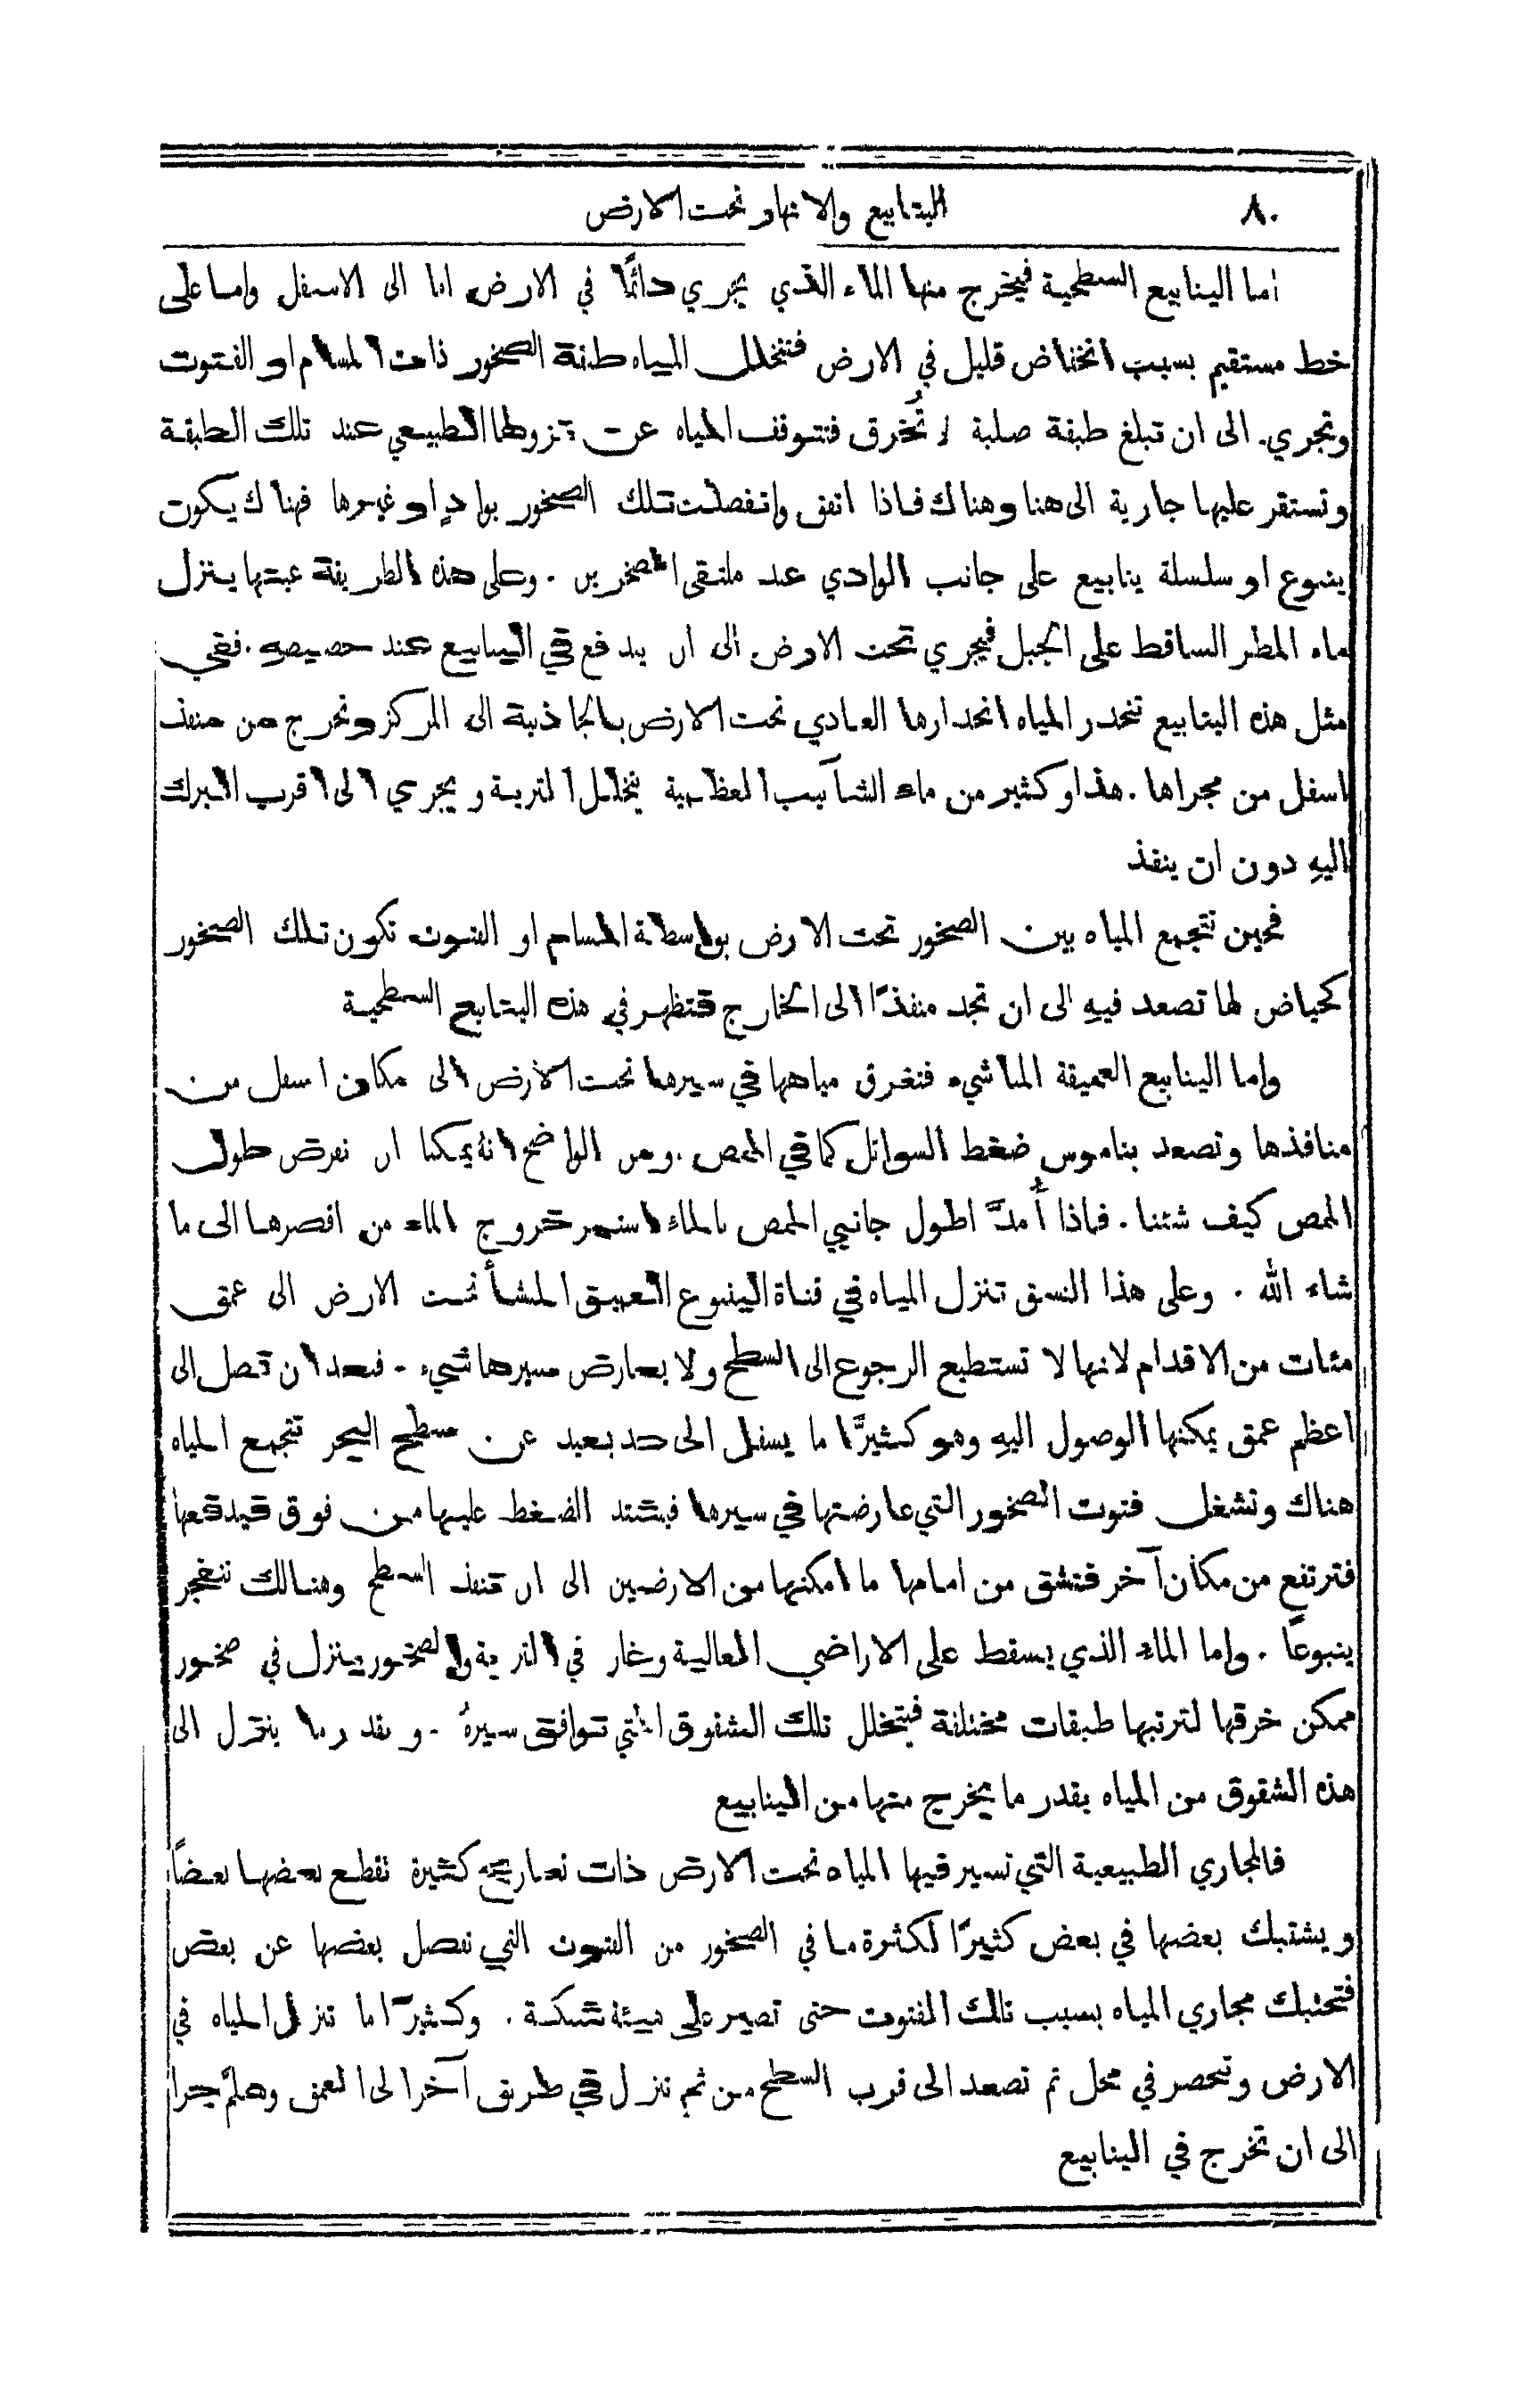 ٨٠ الينابيع والانهار تحت الارض
اما الينابيع السطحية فيخرج منها الماء الذي يجري دائمًا في الارض اما الى الاسفل واما على
خط مستقيم بسبب انخفاض قليل في الارض فتتخلل المياه طبقة الصخور ذات المسام او الفتوت
وتجري الى ان تبلغ طبقة صلبة لا تُخرق فتتوقف المياه عن نزولها الطبيعي عند تلك الطبقة
وتستقر عليها جارية الى هنا وهناك فاذا اتفق وانفصلت تلك الصخور بوادٍ او غيرها فهناك يكون
ينبوع او سلسلة ينابيع على جانب الوادي عند ملتقى الصخرين . وعلى هذه الطريقة عينها ينزل
ماء المطر الساقط على الجبل فيجري تحت الارض الى ان يندفع في الينابيع عند حضيضه . ففي
مثل هذه الينابيع تنحدر المياه انحدارها العادي تحت الارض بالجاذبية الى المركز وتخرج من منفذ
اسفل من مجراها . هذا وكثير من ماء الشآبيب العظيمة يتخلل التربة ويجري الى اقرب البرك
اليهِ دون ان ينفذ
فحين تتجمع المياه بين الصخور تحت الارض بواسطة المسام او الفتوت تكون تلك الصخور
كحياض لها تصعد فيهِ الى ان تجد منفذًا الى الخارج فتظهر في هذه الينابيع السطحية
واما الينابيع العميقة المناشيء فتغرق مياهها في سيرها تحت الارض الى مكان اسفل من
منافذها وتصعد بناموس ضغط السوائل كما في الممص . ومن الواضح انهُ يمكنا ان نفرض طول
الممص كيف شئنا . فاذا أُمدَّ اطول جانبي الممص بالماء استمر خروج الماء من اقصرها الى ما
شاء الله . وعلى هذا النسق تنزل المياه في قناة الينبوع العميق المنشأ تحت الارض الى عمق
مئات من الاقدام لانها لا تستطيع الرجوع الى السطح ولا يعارض مسيرها شيء . فبعد ان تصل الى
اعظم عمق يمكنها الوصول اليهِ وهو كثيرًا ما يسفل الى حد بعيد عن سطح البحر تتجمع المياه
هناك وتشغل فتوت الصخور التي عارضتها في سيرها فيشتد الضغط عليها من فوق فيدفعها
فترتفع من مكان آخر فتشق من امامها ما امكنها من الارضين الى ان تنفذ السطح وهنالك تنفجر
ينبوعًا . واما الماء الذي يسقط على الاراضي العالية وغار في التربة والصخور ينزل في صخور
ممكن خرقها لترتبها طبقات مختلفة فيتخلل تلك الشقوق التي توافق سيرهُ . وبقدر ما ينزل الى
هذه الشقوق من المياه بقدر ما يخرج منها من الينابيع
فالمجاري الطبيعية التي تسير فيها المياه تحت الارض ذات تعاريج كثيرة تقطع بعضها بعضًا
ويشتبك بعضها في بعض كثيرًا لكثرة ما في الصخور من الفتوت التي تفصل بعضها عن بعض
فتحتبك مجاري المياه بسبب تلك الفتوت حتى تصير على هيئة شبكة . وكثيرًا ما تنزل المياه في
الارض وتنحصر في محل ثم تصعد الى قرب السطح من ثم تنزل في طريق آخر الى العمق وهلمَّ جرا
الى ان تخرج في الينابيع